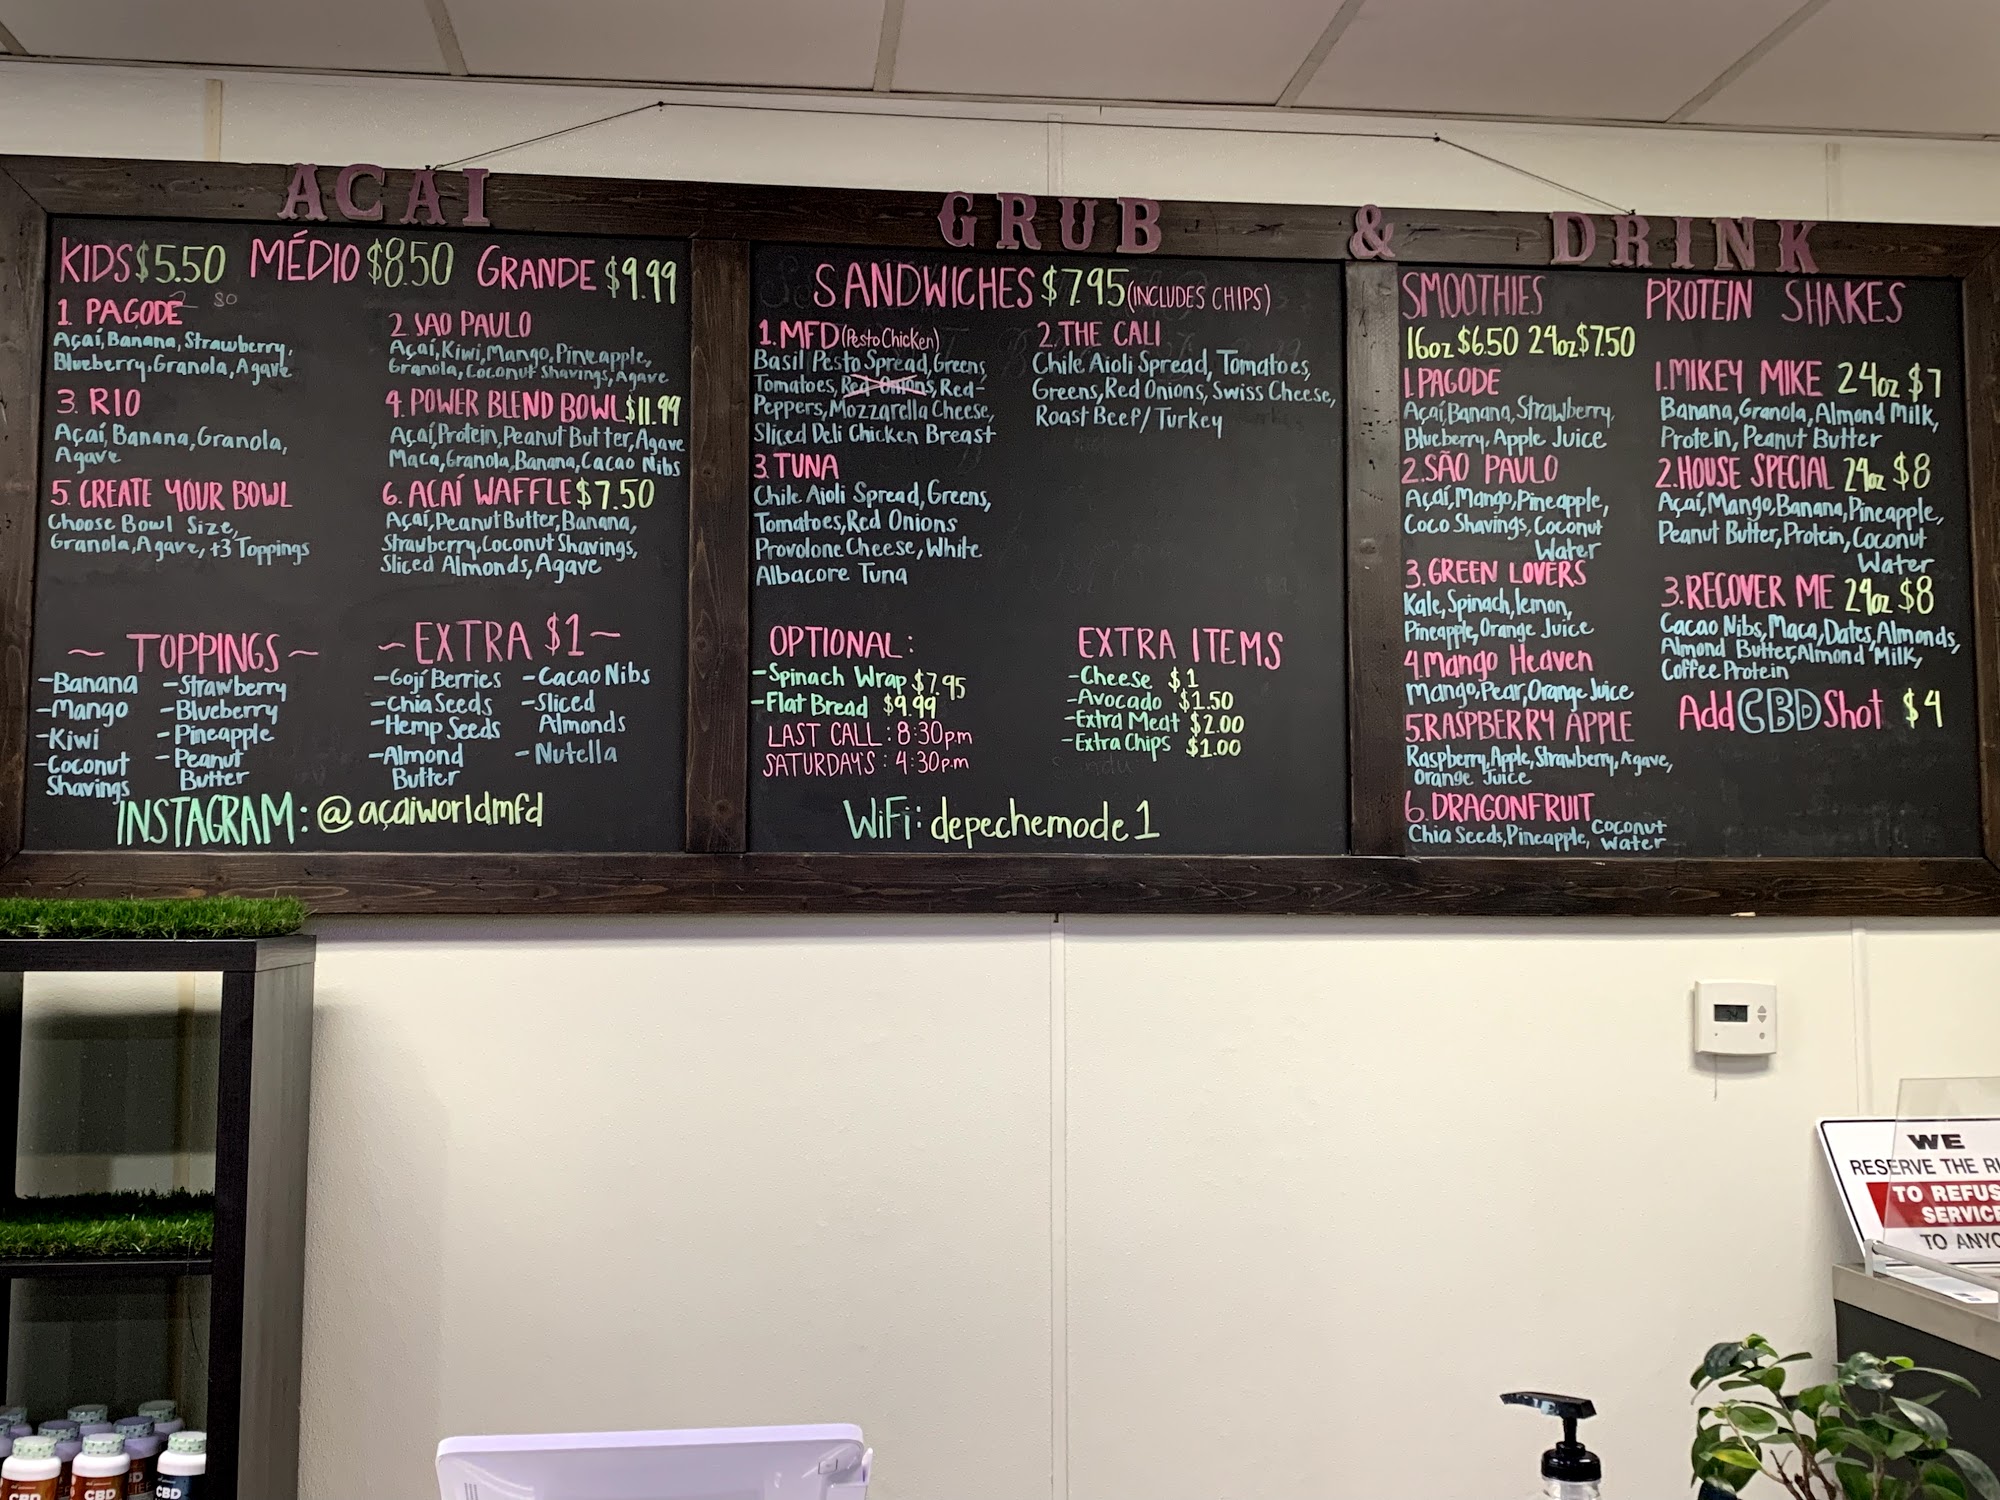 AÇAI
KIDS $5.50 MÉDIO $8.50 GRANDE $9.99
1. PAGODE
Açaí, Banana, Strawberry,
Blueberry, Granola, Agave
2. SAO PAULO
Açaí, Kiwi, Mango, Pineapple,
Granola, Coconut Shavings, Agave
3. RIO
Açaí, Banana, Granola,
Agave
4. POWER BLEND BOWL $11.99
Açaí, Protein, Peanut Butter, Agave
Maca, Granola, Banana, Cacao Nibs
5. CREATE YOUR BOWL
Choose Bowl Size,
Granola, Agave, +3 Toppings
6. AÇAÍ WAFFLE $7.50
Açaí, Peanut Butter, Banana,
Strawberry, Coconut Shavings,
Sliced Almonds, Agave
~ TOPPINGS ~
-Banana
-Mango
-Kiwi
-Coconut
Shavings
-Strawberry
-Blueberry
-Pineapple
-Peanut
Butter
~ EXTRA $1 ~
-Gojí Berries
-Chia Seeds
-Hemp Seeds
-Almond
Butter
-Cacao Nibs
-Sliced
Almonds
-Nutella
INSTAGRAM: @açaiworldmfd
GRUB & DRINK
SANDWICHES $7.95 (INCLUDES CHIPS)
1. MFD (Pesto Chicken)
Basil Pesto Spread, Greens
Tomatoes, Red Onions, Red-
Peppers, Mozzarella Cheese,
Sliced Deli Chicken Breast
2. THE CALI
Chile Aioli Spread, Tomatoes,
Greens, Red Onions, Swiss Cheese,
Roast Beef/Turkey
3. TUNA
Chile Aioli Spread, Greens,
Tomatoes, Red Onions
Provolone Cheese, White
Albacore Tuna
OPTIONAL:
-Spinach Wrap $7.95
-Flat Bread $9.99
LAST CALL: 8:30p.m
SATURDAY'S: 4:30p.m
EXTRA ITEMS
-Cheese $1
-Avocado $1.50
-Extra Meat $2.00
-Extra Chips $1.00
WiFi: depechemode1
SMOOTHIES
16oz $6.50 24oz $7.50
1. PAGODE
Açaí, Banana, Strawberry,
Blueberry, Apple Juice
2. SÃO PAULO
Açaí, Mango, Pineapple,
Coco Shavings, Coconut
Water
3. GREEN LOVERS
Kale, Spinach, lemon,
Pineapple, Orange Juice
4. Mango Heaven
Mango, Pear, Orange Juice
5. RASPBERRY APPLE
Raspberry, Apple, Strawberry, Agave,
Orange Juice
6. DRAGONFRUIT
Chia Seeds, Pineapple, Coconut
Water
PROTEIN SHAKES
1. MIKEY MIKE 24oz $7
Banana, Granola, Almond Milk,
Protein, Peanut Butter
2. HOUSE SPECIAL 24oz $8
Açaí, Mango, Banana, Pineapple,
Peanut Butter, Protein, Coconut
Water
3. RECOVER ME 24oz $8
Cacao Nibs, Maca, Dates, Almonds,
Almond Butter, Almond Milk,
Coffee Protein
Add CBD Shot $4
WE
RESERVE THE RI
TO REFUS
SERVICE
TO ANYO
CBD
CBD
CBD